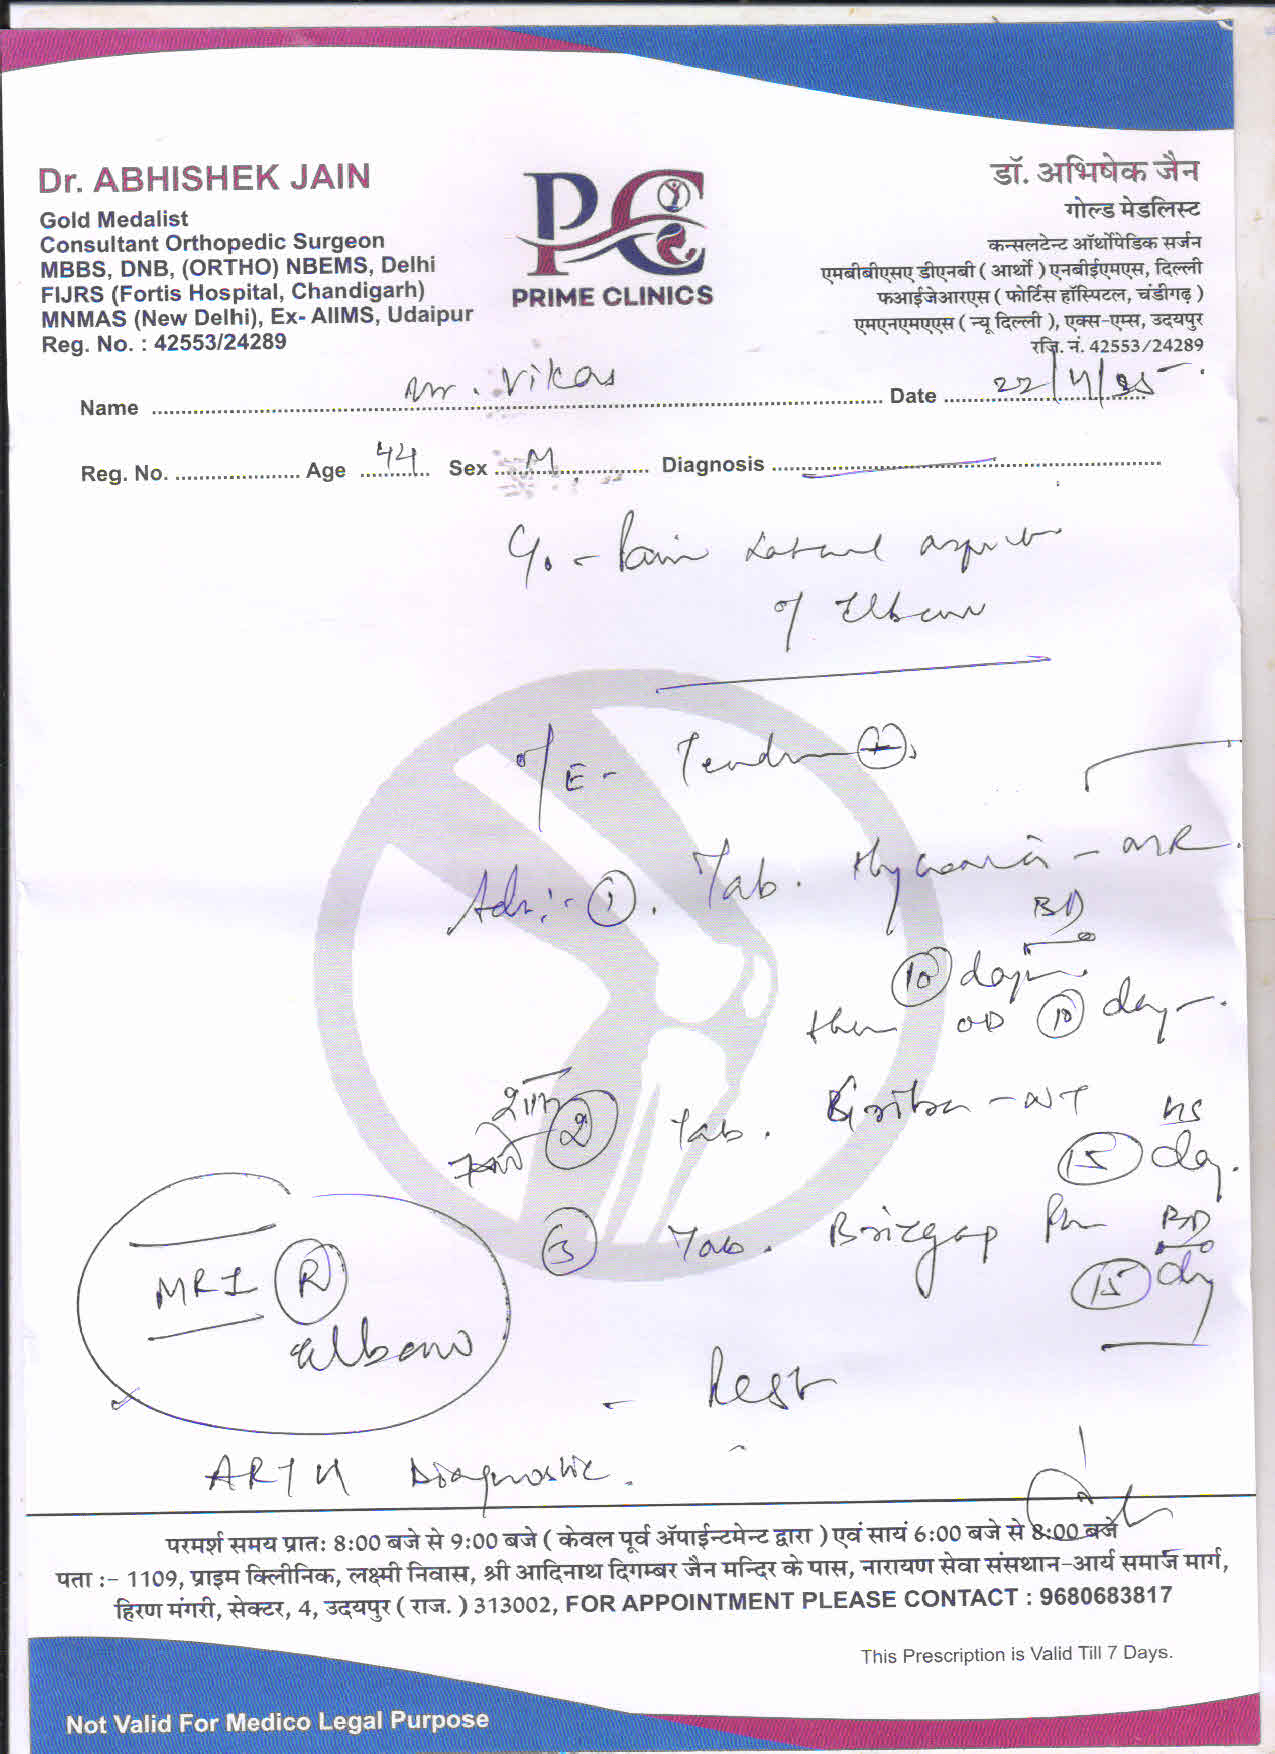 Dr. ABHISHEK JAIN
Gold Medalist
Consultant Orthopedic Surgeon
MBBS, DNB, (ORTHO) NBEMS, Delhi
FIJRS (Fortis Hospital, Chandigarh)
MNMAS (New Delhi), Ex- AIIMS, Udaipur
Reg. No. : 42553/24289
PC
PRIME CLINICS
डॉ. अभिषेक जैन
गोल्ड मेडलिस्ट
कन्सलटेन्ट ऑर्थोपेडिक सर्जन
एमबीबीएसए डीएनबी ( आर्थो ) एनबीईएमएस, दिल्ली
फआईजेआरएस ( फोर्टिस हॉस्पिटल, चंडीगढ़ )
एमएनएमएएस ( न्यू दिल्ली ), एक्स-एम्स, उदयपुर
रजि. नं. 42553/24289
Name Mr. Vikas Date 22/4/25
Reg. No. Age 44 Sex M Diagnosis
C/o - Pain Lateral aspect
of Elbow
O/E - Tendern +
Adv :- 1. Tab. - MR
BD
10 days
then OD 10 day
2 Tab. - NT HS
15 day.
3 Tab. Brizgap BD
15 day
MRI R
elbow
- Rest
Diagnostic.
परमर्श समय प्रातः 8:00 बजे से 9:00 बजे ( केवल पूर्व ॲपाईन्टमेन्ट द्वारा ) एवं सायं 6:00 बजे से 8:00 बजे
पता :- 1109, प्राइम क्लिीनिक, लक्ष्मी निवास, श्री आदिनाथ दिगम्बर जैन मन्दिर के पास, नारायण सेवा संसथान-आर्य समाज मार्ग,
हिरण मंगरी, सेक्टर, 4, उदयपुर ( राज. ) 313002, FOR APPOINTMENT PLEASE CONTACT : 9680683817
This Prescription is Valid Till 7 Days.
Not Valid For Medico Legal Purpose